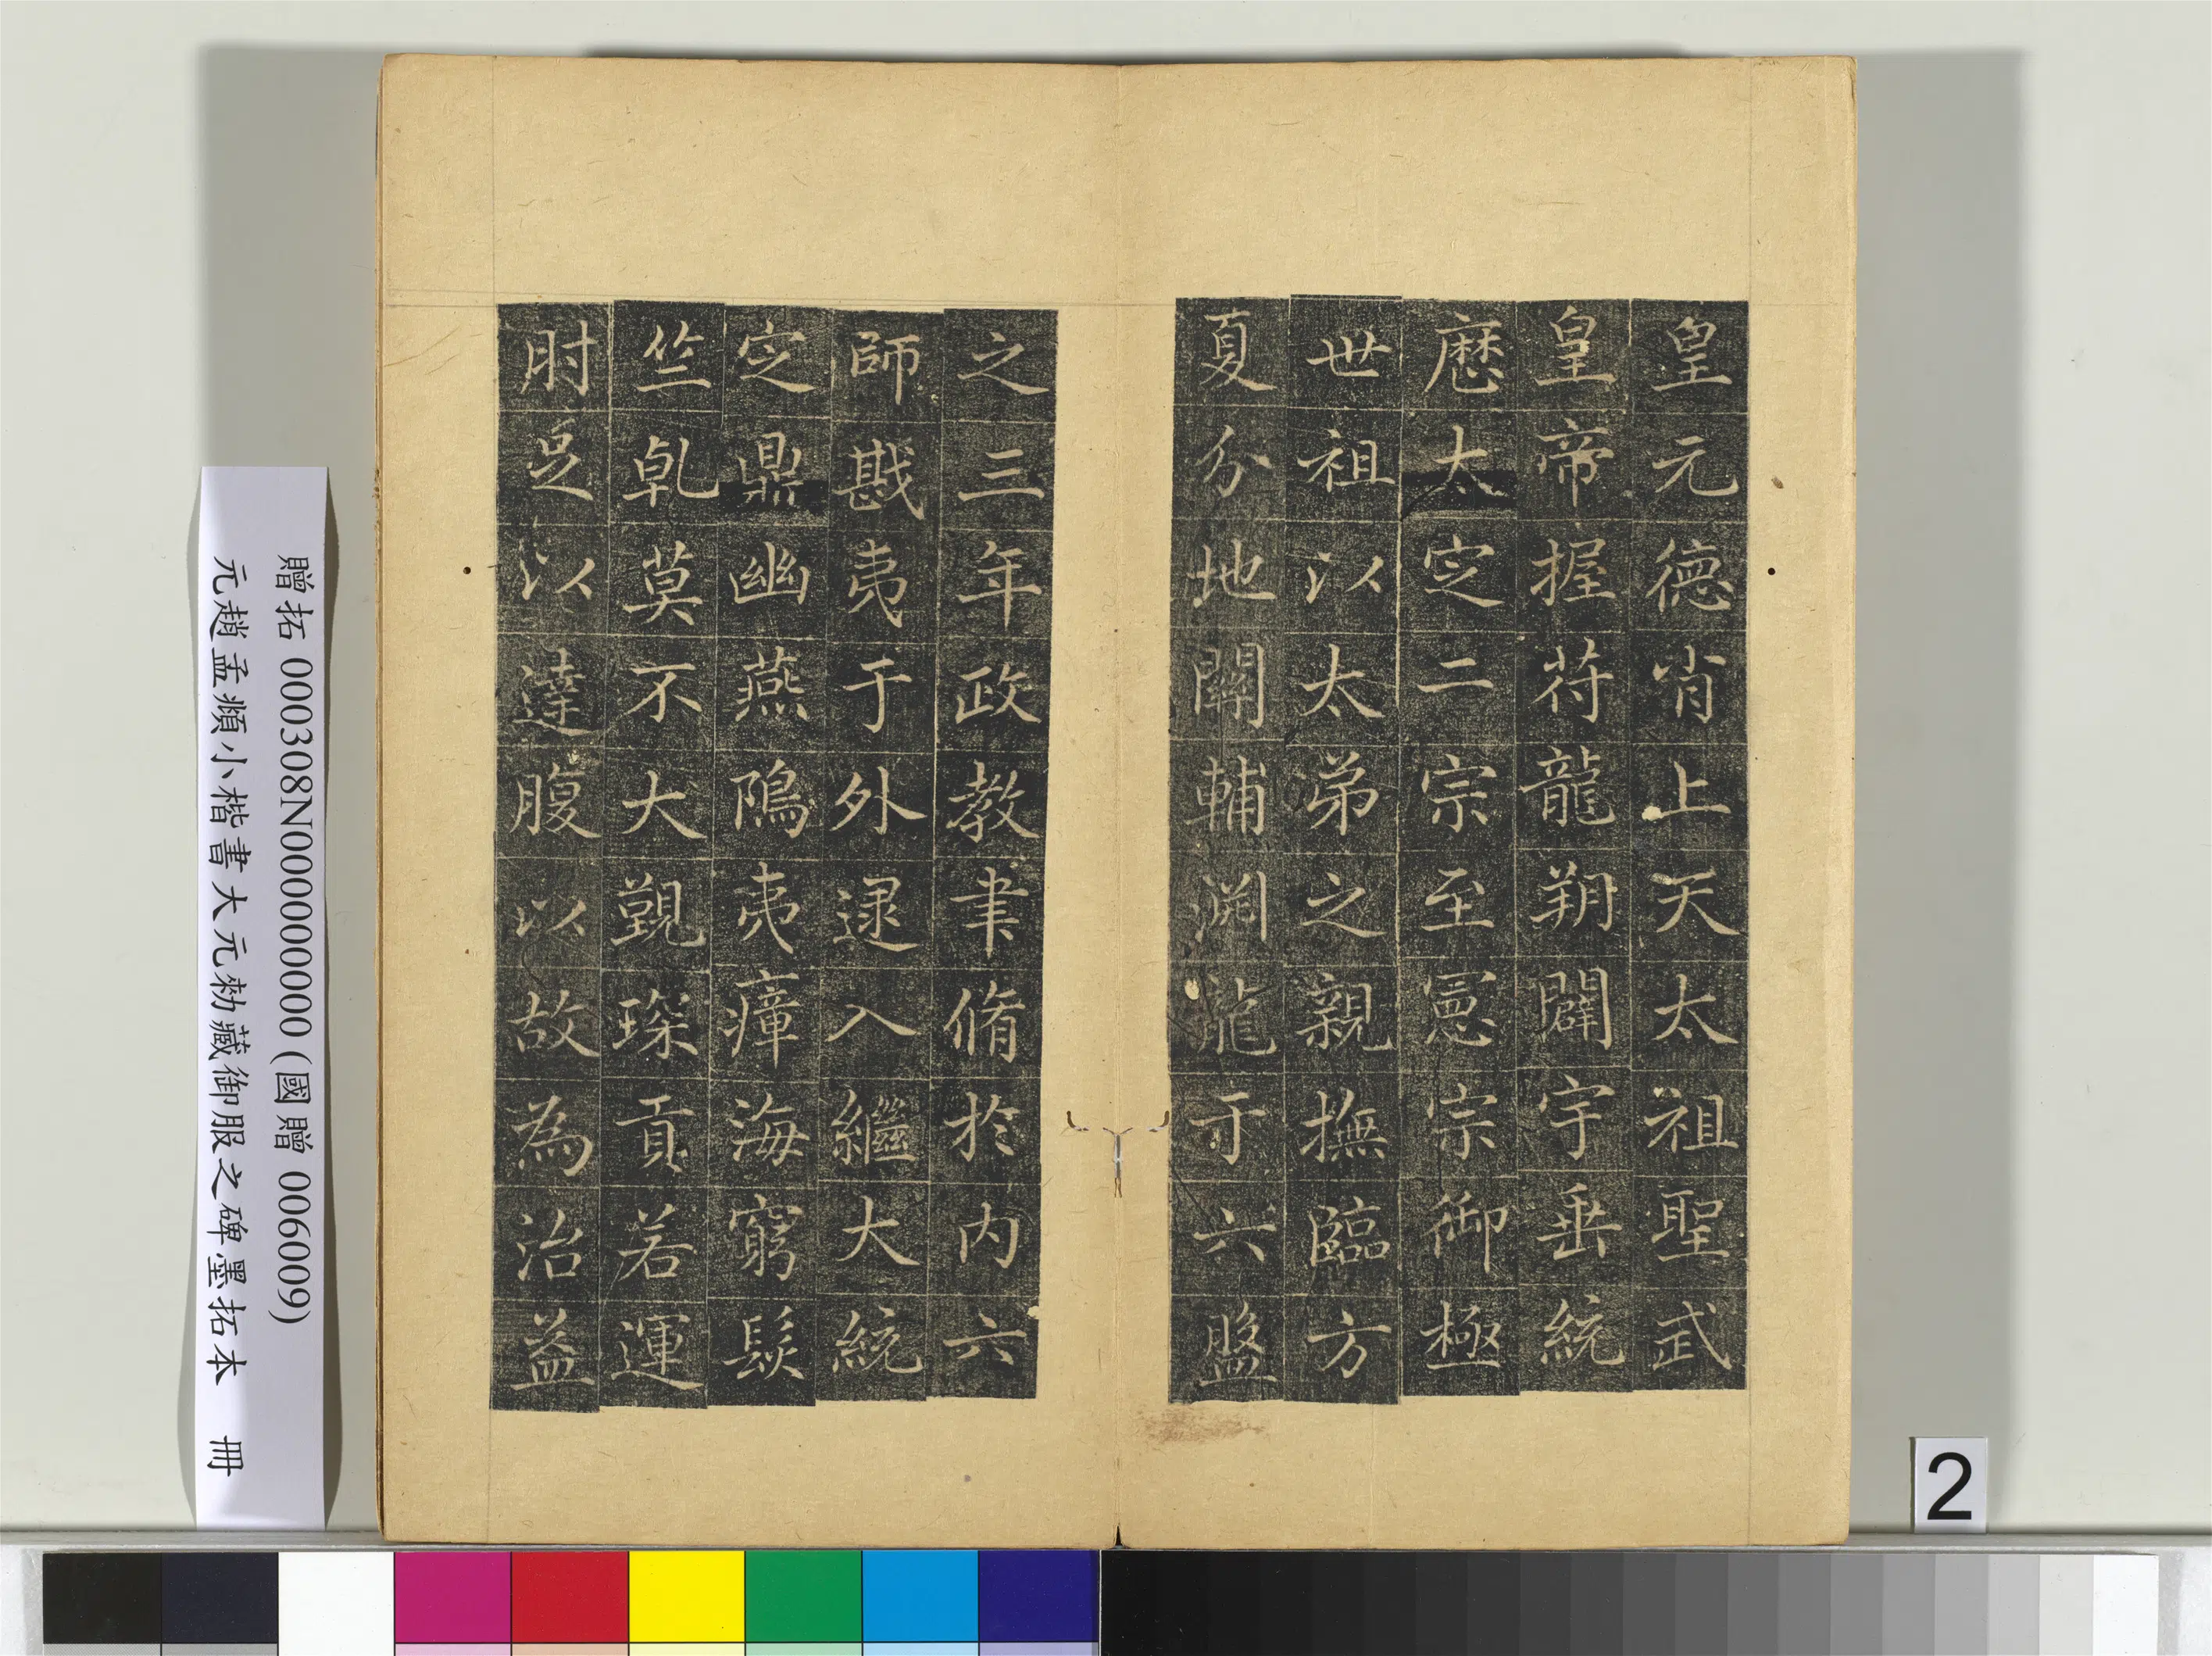 皇元德肖上天太祖聖武
皇帝握符龍朔闢宇垂統
歷太定二宗至憲宗御極
世祖以太弟之親撫臨方
夏分地關輔渊龍于六盤
之三年政教聿脩於內六
師戡夷于外逮入繼大統
定鼎幽燕隝夷瘴海窮髮
竺乹莫不大觐琛貢若運
肘足以達腹以故為治益
贈拓 000308N000000000 (國贈 006009)
元趙孟頫小楷書大元勑藏御服之碑墨拓本 冊
2